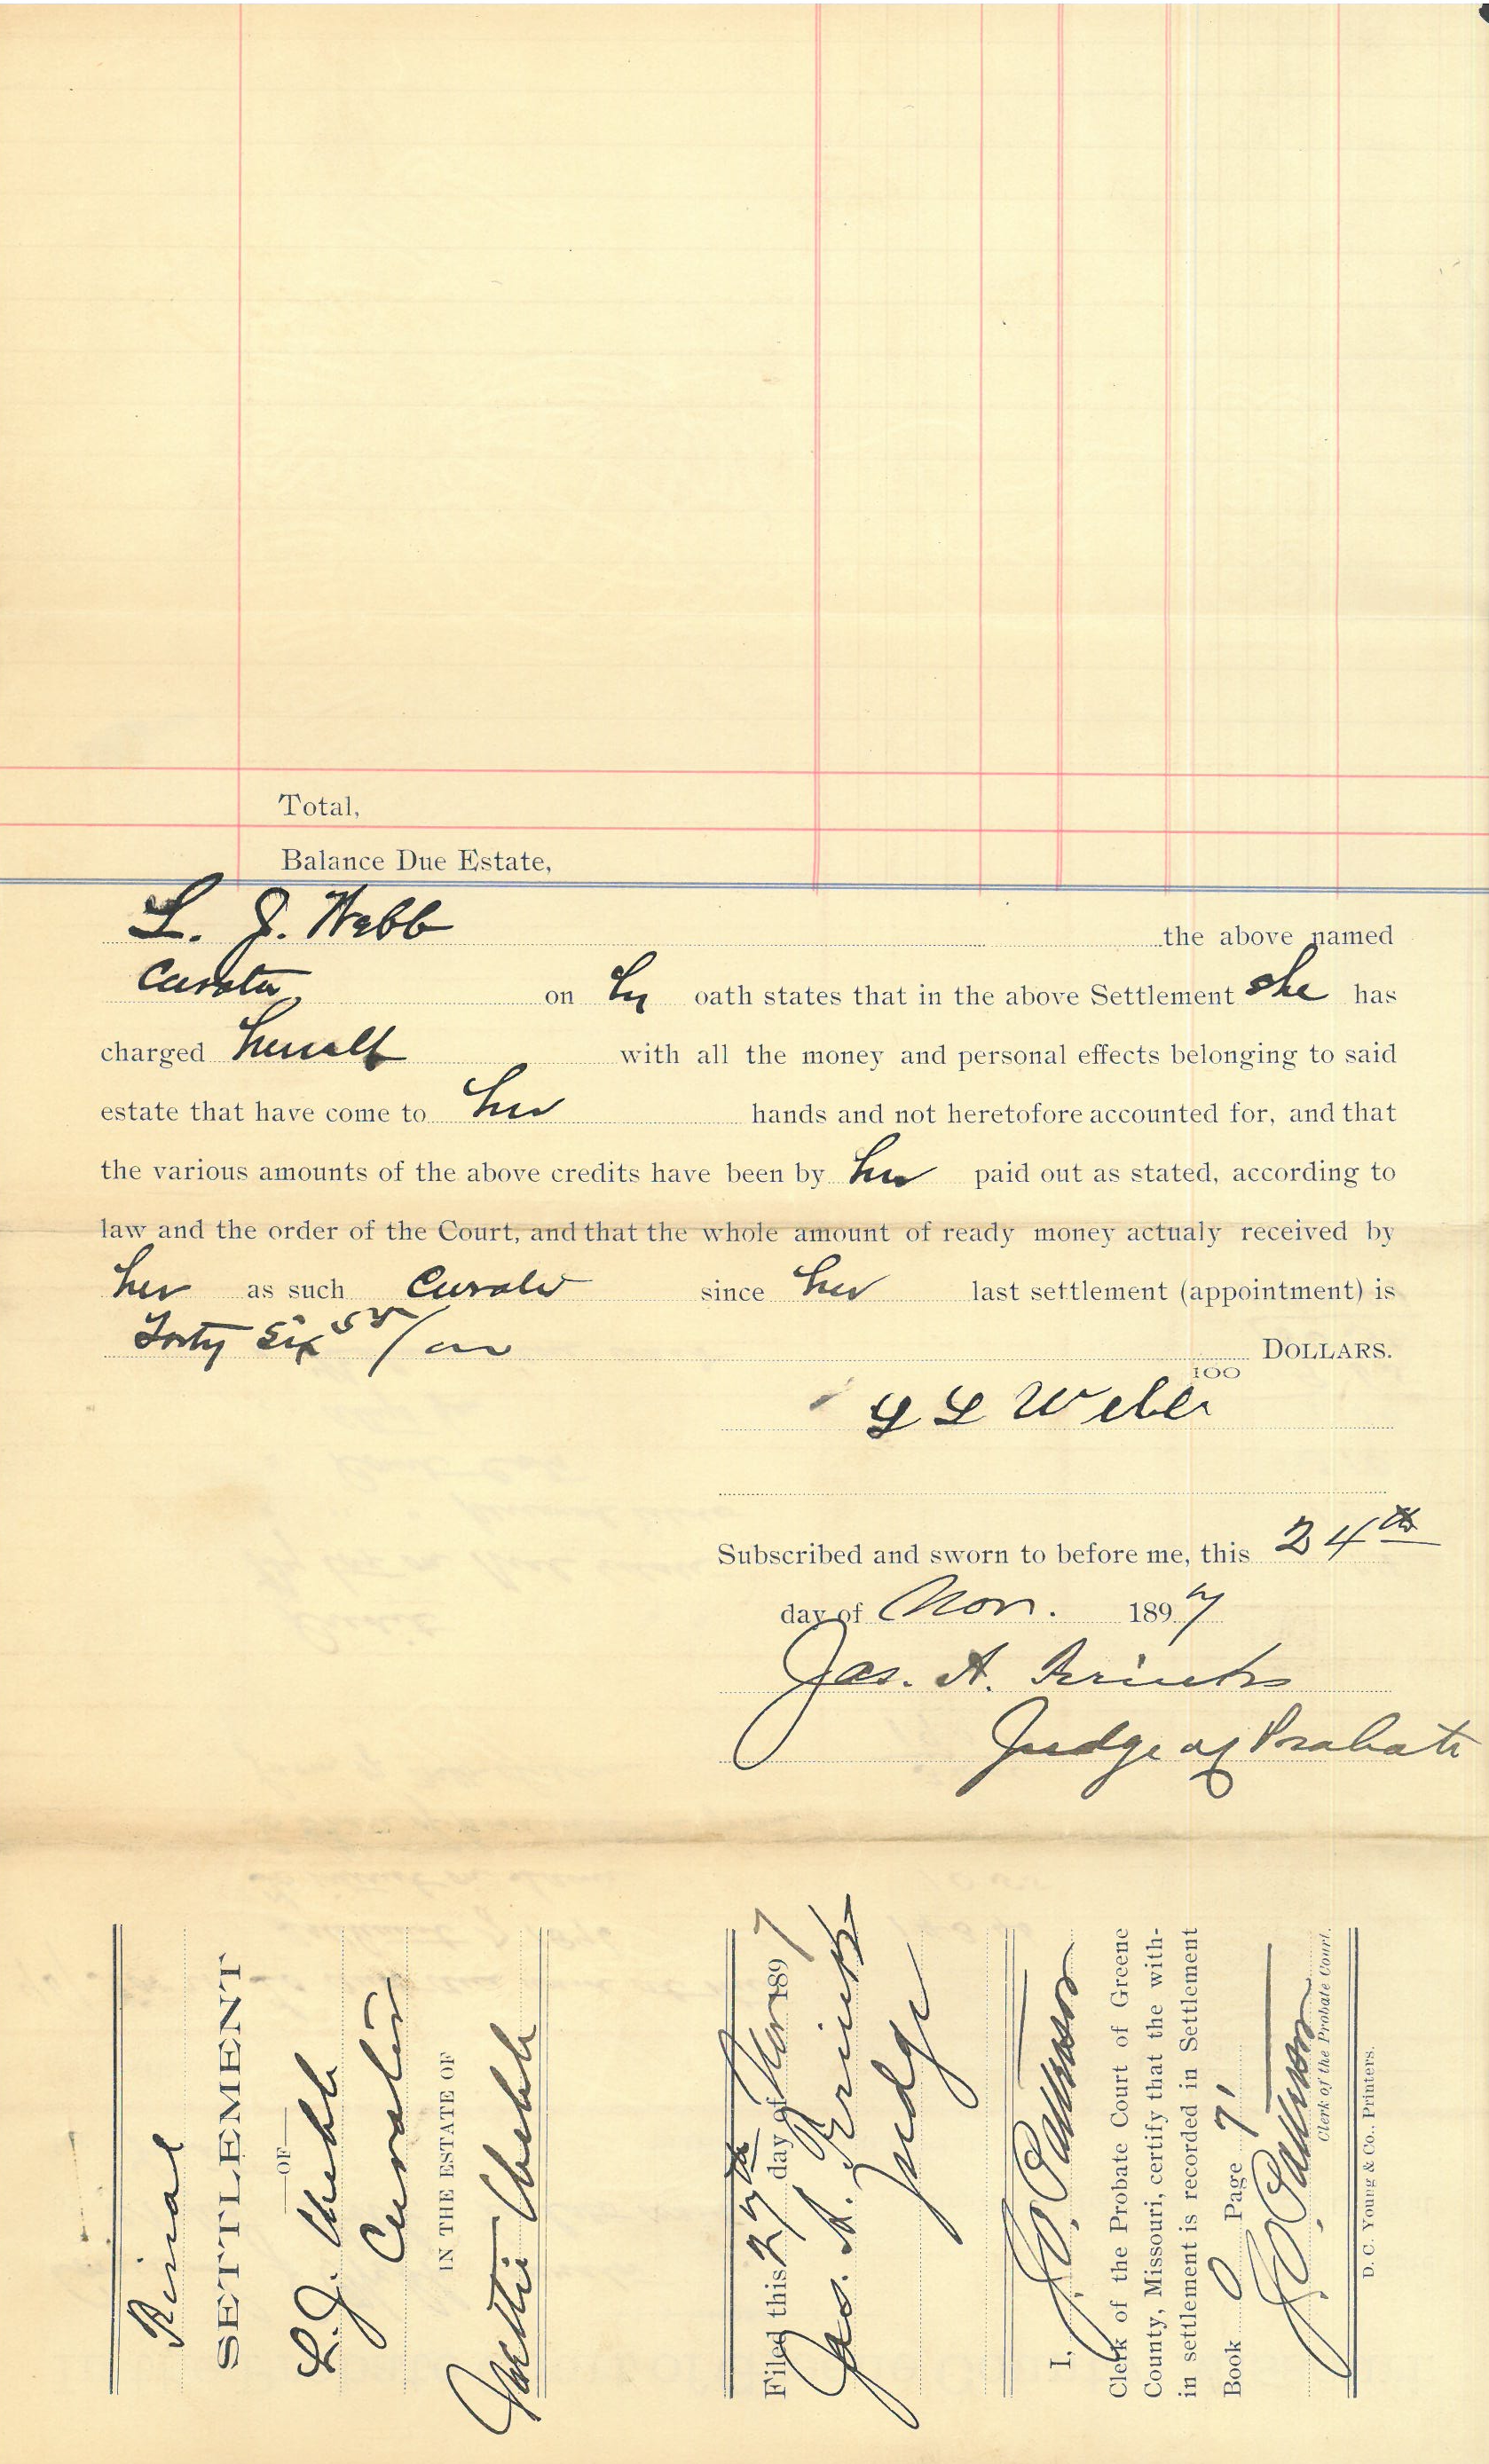 Total,
Balance Due Estate,
L. J. Webb the above named
Curator on her oath states that in the above Settlement she has
charged herself with all the money and personal effects belonging to said
estate that have come to her hands and not heretofore accounted for, and that
the various amounts of the above credits have been by her paid out as stated, according to
law and the order of the Court, and that the whole amount of ready money actualy received by
her as such Curator since her last settlement (appointment) is
Forty Six 55/100 DOLLARS.
100
Subscribed and sworn to before me, this 24th
day of Nov. 1897
Jas. A.
Judge of Probate
Final
SETTLEMENT
—OF—
L. J. Webb
Curator
IN THE ESTATE OF
Mettie Webb
Filed this 27th day of Nov 1897
Jas. A.
Judge
I,
Clerk of the Probate Court of Greene
County, Missouri, certify that the with-
in settlement is recorded in Settlement
Book O Page 71
Clerk of the Probate Court.
D. C. Young & Co., Printers.